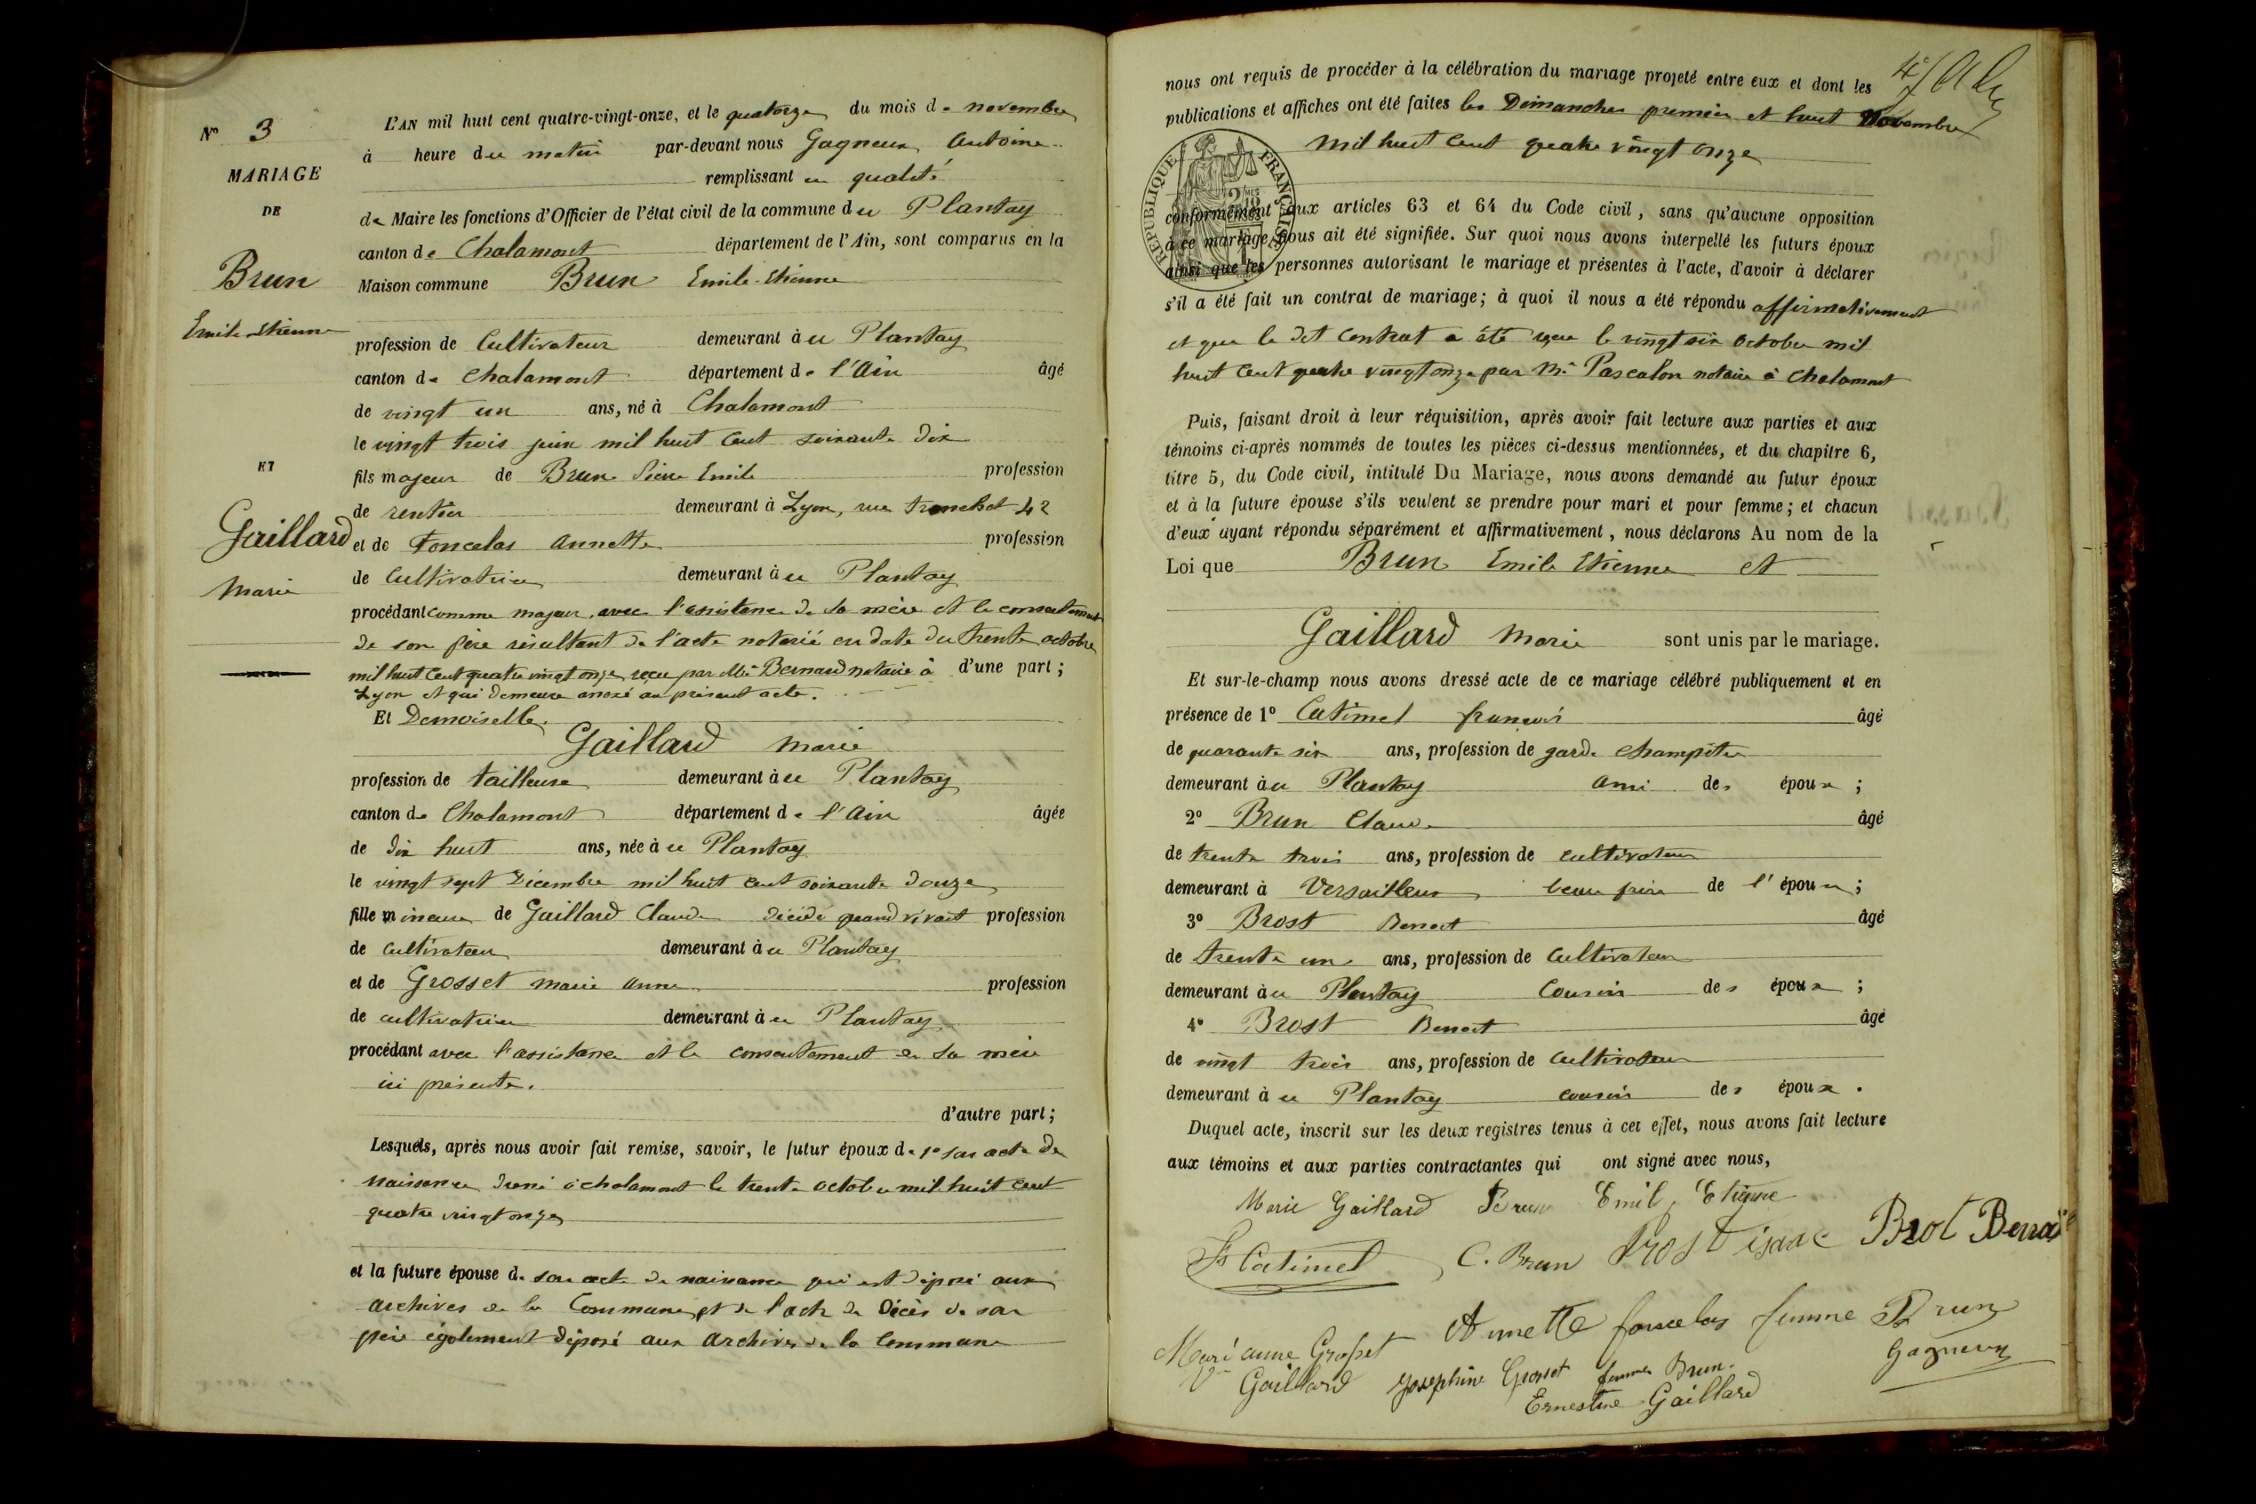 N° 3
MARIAGE
DE
Brun
Emile Etienne
ET
Gaillard
Marie
L'AN mil huit cent quatre-vingt-onze, et le quatorze du mois de novembre
à heure du matin par-devant nous Gagneux Antoine
remplissant en qualité
de Maire les fonctions d'Officier de l'état civil de la commune du Plantay
canton de Chalamont département de l'Ain, sont comparus en la
Maison commune Brun Emile Etienne
profession de Cultivateur demeurant à u Plantay
canton de Chalamont département de l'Ain âgé
de vingt un ans, né à Chalamont
le vingt trois juin mil huit cent soixante dix
fils majeur de Brun Pierre Emile profession
de rentier demeurant à Lyon, rue tronchet 42
et de Foncelas Annette profession
de Cultivatrice demeurant à u Plantay
procédant comme majeur, avec l'assistance de sa mère et le consentement
de son père résultant de l'acte notarié en date du trente octobre
mil huit cent quatre vingt onze, reçu par Me Bernard notaire à d'une part;
Lyon et qui demeure annexé au présent acte.
Et Demoiselle
Gaillard Marie
profession de tailleuse demeurant à u Plantay
canton de Chalamont département de l'Ain âgée
de dix huit ans, née à u Plantay
le vingt sept Décembre mil huit cent soixante douze
fille mineure de Gaillard Claude décédé quand vivait profession
de cultivateur demeurant à u Plantay
et de Grosset marie anne profession
de cultivatrice demeurant à u Plantay
procédant avec l'assistance et le consentement de sa mère
ici présente.
d'autre part;
Lesquels, après nous avoir fait remise, savoir, le futur époux de 1° son acte de
naissance dressé à chalamont le trente octobre mil huit cent
quatre vingt onze
et la future épouse de son acte de naissance qui est déposé aux
archives de la Commune et de l'acte de Décès de son
père également déposé aux archives de la Commune
nous ont requis de procéder à la célébration du mariage projeté entre eux et dont les
publications et affiches ont été faites les Dimanches premier et huit Novembre
mil huit cent quatre vingt onze
RÉPUBLIQUE FRANÇAISE
conformément aux articles 63 et 64 du Code civil, sans qu'aucune opposition
à ce mariage nous ait été signifiée. Sur quoi nous avons interpellé les futurs époux
ainsi que les personnes autorisant le mariage et présentes à l'acte, d'avoir à déclarer
s'il a été fait un contrat de mariage; à quoi il nous a été répondu affirmativement
et que le dit contrat a été reçu le vingt six octobre mil
huit cent quatre vingt onze par Me Pascalon notaire à Chalamont
Puis, faisant droit à leur réquisition, après avoir fait lecture aux parties et aux
témoins ci-après nommés de toutes les pièces ci-dessus mentionnées, et du chapitre 6,
titre 5, du Code civil, intitulé Du Mariage, nous avons demandé au futur époux
et à la future épouse s'ils veulent se prendre pour mari et pour femme; et chacun
d'eux ayant répondu séparément et affirmativement, nous déclarons Au nom de la
Loi que Brun Emile Etienne et
Gaillard Marie sont unis par le mariage.
Et sur-le-champ nous avons dressé acte de ce mariage célébré publiquement et en
présence de 1° Catimel françois âgé
de quarante six ans, profession de garde champêtre
demeurant à u Plantay ami des époux ;
2° Brun Claude âgé
de trente trois ans, profession de cultivateur
demeurant à Versailleux beau frère de l'époux ;
3° Brost Benoit âgé
de trente un ans, profession de Cultivateur
demeurant à u Plantay Cousin des époux ;
4° Brost Benoit âgé
de vingt trois ans, profession de Cultivateur
demeurant à u Plantay cousin des époux .
Duquel acte, inscrit sur les deux registres tenus à cet effet, nous avons fait lecture
aux témoins et aux parties contractantes qui ont signé avec nous,
Marie Gaillard Brun Emile Etienne
Catimel C. Brun Brost Brot Benoi
Marie anne Grosset Annette foncelas femme Brun
Ve Gaillard Josephine Grosset femme Brun Gagneux
Ernestine Gaillard